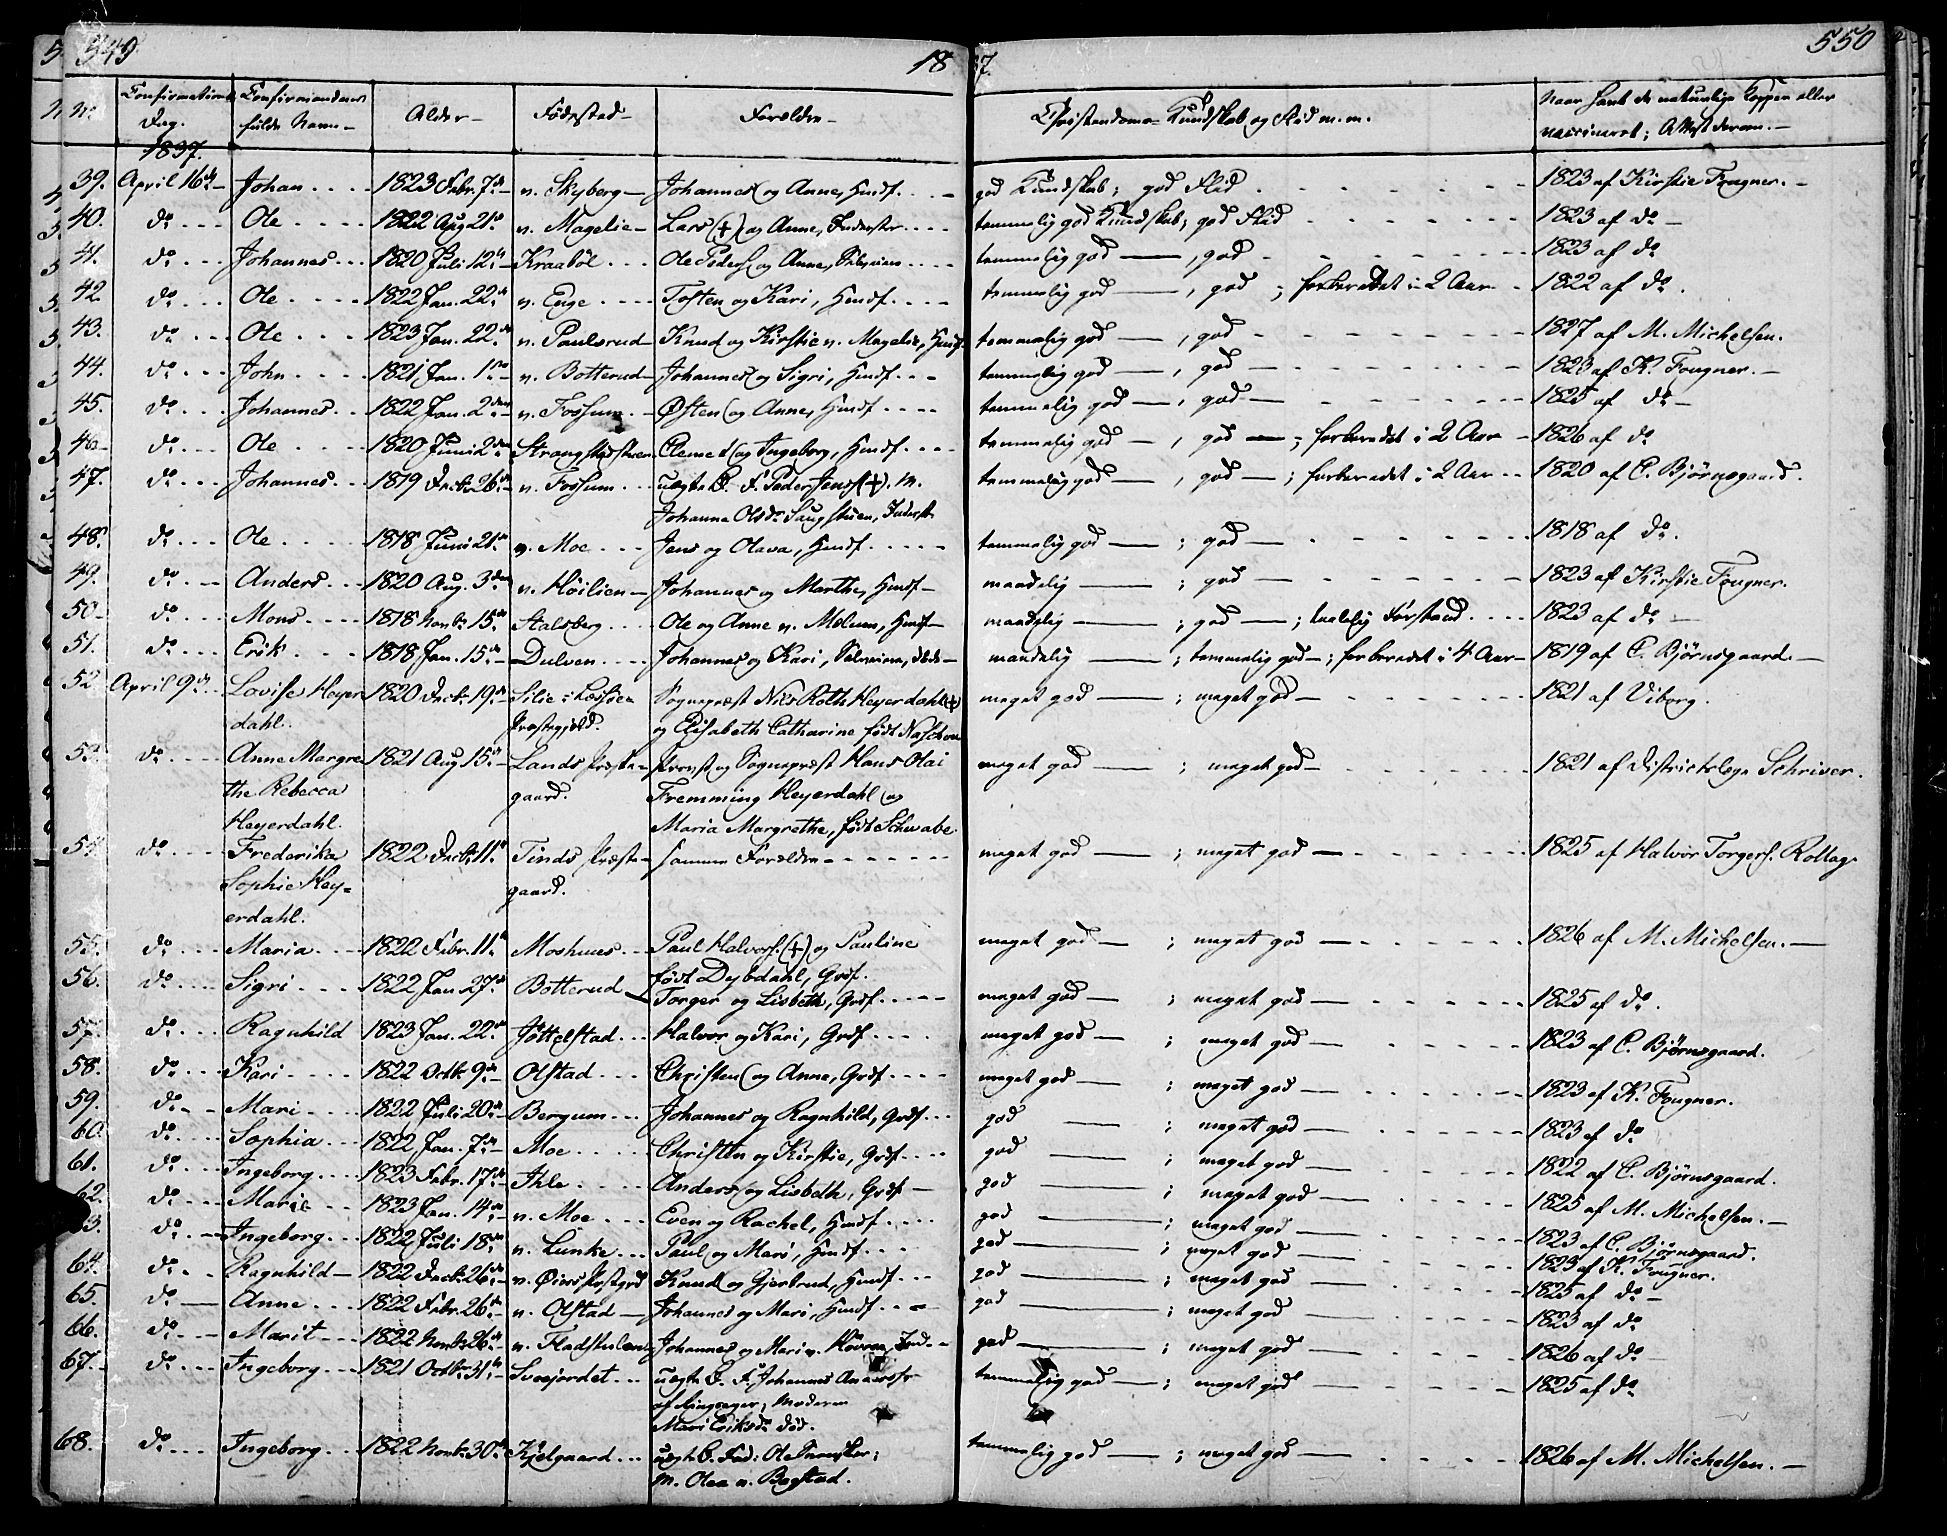 549 1837. 550
No Confirmations Dag. Confirmandernes fulde Navn Alder Fødested Forældre Christendoms Kundskab og Flid m. m. Naar havt de naturlige Kopper eller vaccineret; Attest derom.
1837.
39. April 16de Johan 1823 Febr. 7de n. Skyberg Johannes og Anne, Huusf. god Kundskab; god Flid 1823 af Kirstie Fougner.
40. do Ole 1822 Aug 21de n. Magelie Lars (+) og Anne, Inderster temmelig god Kundskab; god Flid 1823 af do
41. do Johannes 1820 Juli 12te Kraabøl Ole Peders. og Anne, temmelig god —, god 1823 af do
42. do Ole 1822 Jan. 22de n. Enge Tosten og Kari, Huusf. temmelig god —, god ; forberedet i 2 Aar 1822 af do.
43. do Ole 1823 Jan. 22de n. Paulsrud Knud og Kirstie n. Magelie, Huusf. temmelig god —, god 1827 af M. Michelsen.
44. do John 1821 Jan. 1ste n. Botterud Johannes og Sigri, Huusf. temmelig god —, god 1823 af K. Fougner.
45. do Johannes 1822 Jan. 2den n. Fossum Østen og Anne, Huusf. temmelig god —, god 1825 af do
46. do Ole 1820 Juni 2den Clemed og Ingeborg, Huusf. temmelig god —, god —; forberedet i 2 Aar 1826 af do
47. do Johannes 1819 Decb. 26de n. Fossum uægte B. F. Peder Jens. (+). M. temmelig god —, god —; forberedet i 2 Aar 1820 af C. Bjørnsgaard.
Johanne Olsdr. Haugstuen, Inderst
48. do Ole 1818 Juni 21de n. Moe Jens og Olava, Huusf. temmelig god — ; god 1818 af do.
49. do Anders 1820 Aug. 3den n. Høilien Johannes og Marthe, Huusf. maadelig — ; god 1823 af Kirstie Fougner.
50. do Mons 1818 Novb. 15de Stalsberg Ole og Anne n. Melum, Huusf. maadelig — ; god —; taalelig Forstand. 1823 af do
51. do Erik 1818 Jan. 15de Dulven Johannes og Kari, maadelig — ; temmelig god —; forberedet i 4 Aar 1819 af C. Bjørnsgaard.
52. April 9de Lovise Heyer 1820 Decb. 19de Lilie i Lessøe Sognepræst Nils Roth Heyerdahl (+) meget god — ; meget god 1821 af Viborg.
dahl. Præstegjeld. og Elisabeth Catharine født
53. do Anne Margre 1821 Aug 15de Lands Præste- Provst og Sognepræst Hans Olai meget god — ; meget god 1821 af Districtslæge Schriver.
the Rebecca gaard. Fremming Heyerdahl og
Heyerdahl. Maria Margrethe, født Schwabe
54. do Frederika 1822 Decb. 11te Tinds Præste- samme Forældre meget god — ; meget god 1825 af Halvor Torgers. Rollag.
Sophie Hey= gaard.
erdahl.
55. do Maria 1822 Febr. 11te Moshuus Paul Halvors. (+) og Pauline meget god — ; meget god 1826 af M. Michelsen.
født Dybdahl, Grdf.
56. do Sigri 1822 Jan. 27de Botterud Torger og Lisbeth, Grdf. meget god — ; meget god 1825 af do.
57. do Ragnhild 1823 Jan. 22de Jøttelstad Halvor og Kari, Grdf. meget god — ; meget god 1823 af C. Bjørnsgaard.
58. do Kari 1822 Octb. 9de Olstad Christen og Anne, Grdf. meget god — ; meget god 1823 af K. Fougner.
59. do Mari 1822 Juli 20de Bergum Johannes og Ragnhild, Grdf. god — ; meget god 1823 af do
60. do Sophia 1822 Jan. 7de Moe Christen og Kirstie, Grdf. god — ; meget god 1822 af C. Bjørnsgaard.
61. do Ingeborg 1823 Febr. 17de Ihle Anders og Lisbeth, Grdf. god — ; meget god 1825 af M. Michelsen.
62. do Marie 1823 Jan. 14de n. Moe Even og Rachel, Huusf. god — ; meget god 1823 af C. Bjørnsgaard.
63. do Ingeborg 1822 Juli 18de n. Lunke Paul og Mari, Huusf. god — ; meget god 1823 af K. Fougner.
64. do Ragnhild 1822 Decb. 26de n. Knud og Gjertrud, Huusf. god — ; meget god 1825 af do
65. do Anne 1822 Febr. 26de n. Olstad Johannes og Mari, Huusf. god — ; meget god 1823 af do
66. do Marit 1822 Novb. 26de n. Johannes og Mari n. Ind. god — ; meget god 1826 af do
67. do Ingeborg 1821 Octbr. 31te Sveejordet uægte B. F. Johannes Anders. temmelig god — ; meget god 1825 af do
af Ringsager; Moderen
Mari Eriksdr. død.
68. do Ingeborg 1822 Novb. 30te Kjelgaard uægte B. Fad: Ole temmelig god — ; meget god 1826 af M. Michelsen.
M. Olea n. Bogstad.